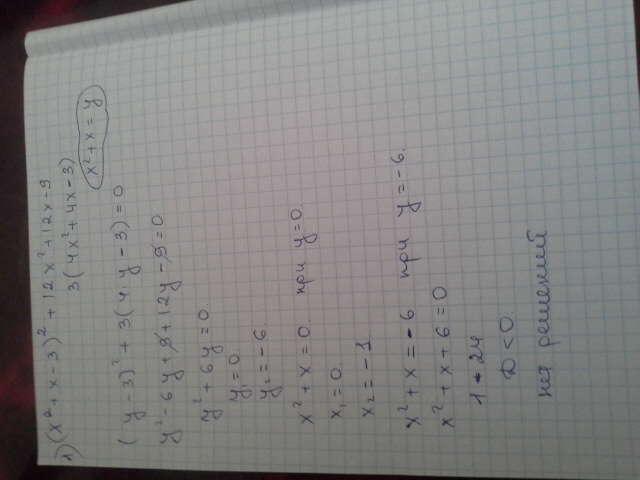 1) (x²+x-3)²+12x²+12x-9
3(4x²+4x-3)
x²+x=y
(y-3)²+3(4y-3)=0
y²-6y+9+12y-9=0
y²+6y=0
y₁=0
y₂=-6
x²+x=0 при y=0
x₁=0
x₂=-1
x²+x=-6 при y=-6
x²+x+6=0
1-24
D<0
нет решений